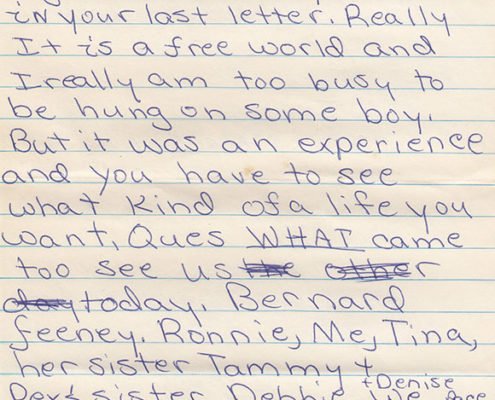 in your last letter. Really
It is a free world and
I really am too busy to
be hung on some boy.
But it was an experience
and you have to see
what kind of a life you
want, Ques WHAT came
too see us the other
day today. Bernard
feeney. Ronnie, Me, Tina,
her sister Tammy +
+ Denise
sister Debbie We